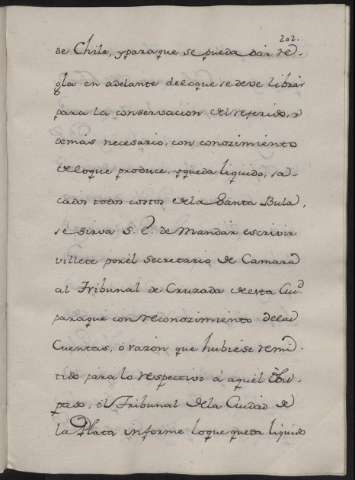 202.
de Chile, y para que se pueda dar re-
gla en adelante de lo que se deve librar
para la conservacion del referido, y
demàs necesario, con conozimiento
de lo que produce, y queda liquido, sa-
cados todos costos de la Santa Bula,
se sirva S. E. de Mandar escrivir
villete por el Secretario de Camara
al Tribunal de Cruzada de esta Ciud
para que con reconozimiento de las
Cuentas, ò razòn que hubiese remi-
tido para lo respectivo à aquel Obis-
pado, el Tribunal de la Ciudad de
la Plata informe lo que queda liquido